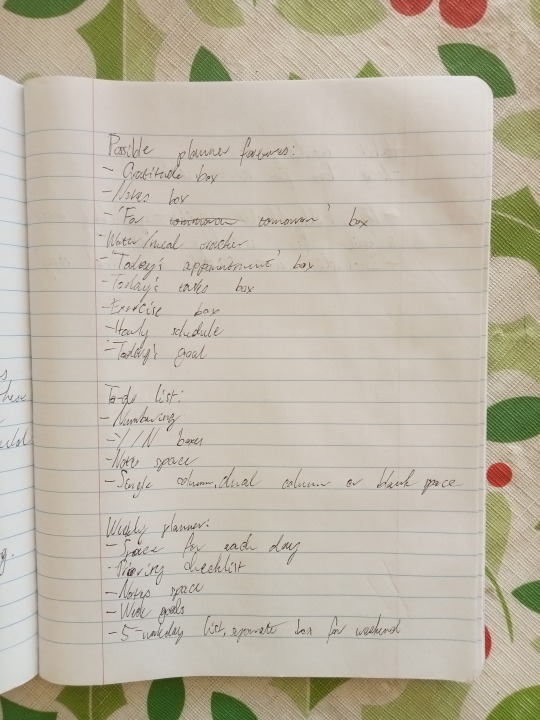 Possible planner features:
- Gratitude box
- Notes box
- 'For tomorrow' box
- Water/meal tracker
- 'Today's appointment' box
- Today's tasks box
- Exercise box
- Hourly schedule
- Today's goal
To-do list:
- Numbering
- Y/N boxes
- Notes space
- Single column, dual column or blank space
Weekly planner:
- Space for each day
- checklist
- Notes space
- Week goals
- 5-weekday list, separate box for weekend
g.